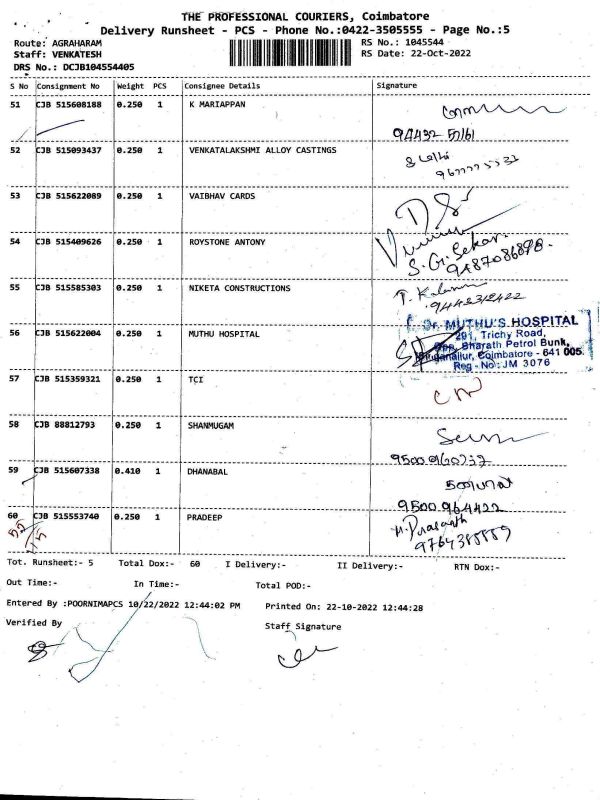 THE PROFESSIONAL COURIERS, Coimbatore
Delivery Runsheet - PCS - Phone No.:0422-3505555 - Page No.:5
Route: AGRAHARAM RS No.: 1045544
Staff: VENKATESH RS Date: 22-Oct-2022
DRS No.: DCJB104554405
S No Consignment No Weight PCS Consignee Details Signature
51 CJB 515608188 0.250 1 K MARIAPPAN
94432 57161
52 CJB 515093437 0.250 1 VENKATALAKSHMI ALLOY CASTINGS
53 CJB 515622089 0.250 1 VAIBHAV CARDS
54 CJB 515409626 0.250 1 ROYSTONE ANTONY
S.G. Sekar.
55 CJB 515585303 0.250 1 NIKETA CONSTRUCTIONS
Dr. MUTHU'S HOSPITAL
291, Trichy Road,
Opp. Bharath Petrol Bunk,
Singanallur, Coimbatore - 641 005.
Reg - No : JM 3076
56 CJB 515622004 0.250 1 MUTHU HOSPITAL
57 CJB 515359321 0.250 1 TCI
58 CJB 88812793 0.250 1 SHANMUGAM
59 CJB 515607338 0.410 1 DHANABAL
9500964422
60 CJB 515553740 0.250 1 PRADEEP
Tot. Runsheet:- 5 Total Dox:- 60 I Delivery:- II Delivery:- RTN Dox:-
Out Time:- In Time:- Total POD:-
Entered By :POORNIMAPCS 10/22/2022 12:44:02 PM Printed On: 22-10-2022 12:44:28
Verified By Staff Signature